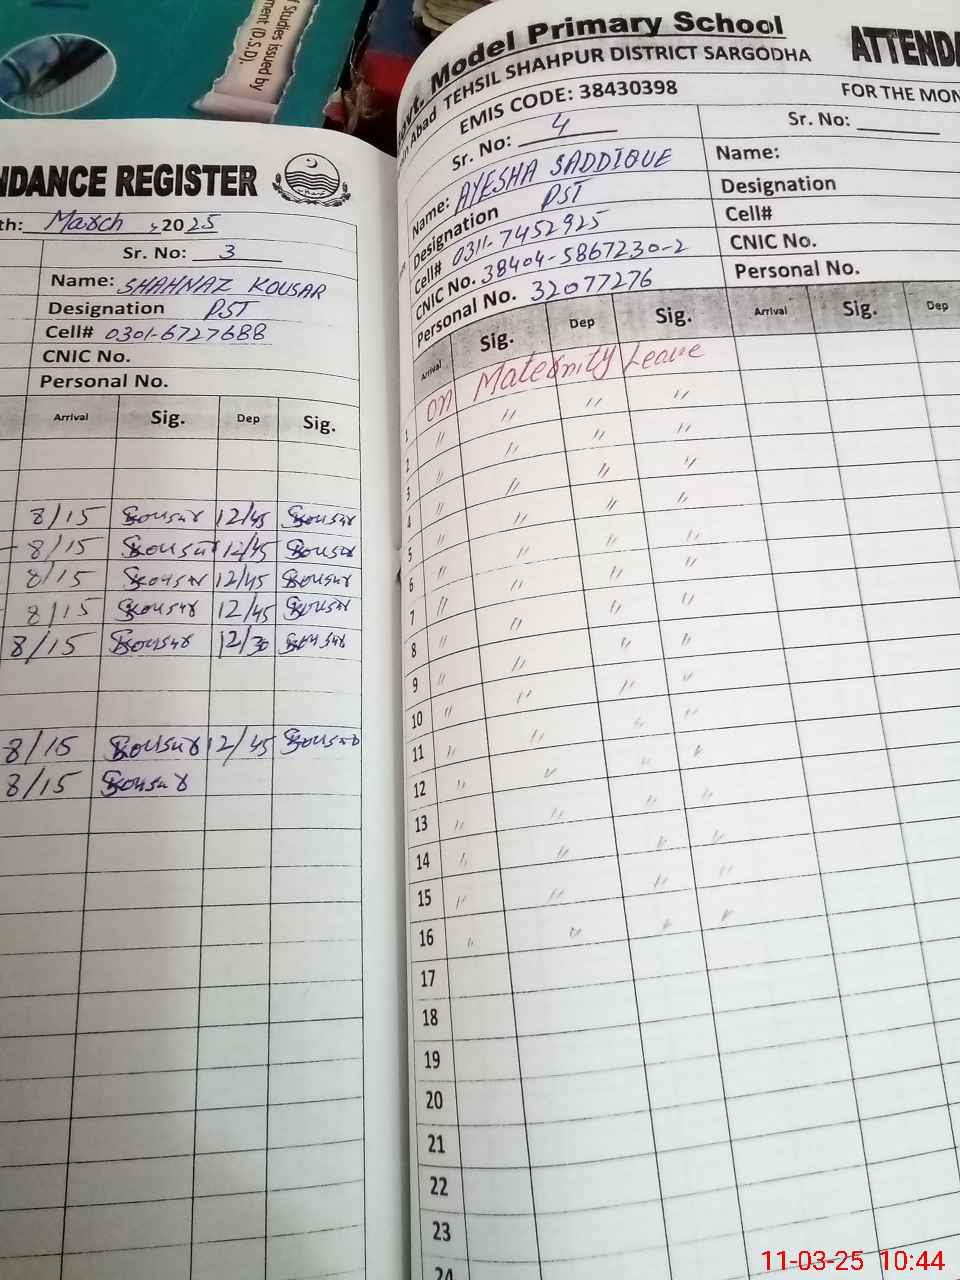 f Studies issued by
ment (D.S.D),
NDANCE REGISTER
th: March , 2025
Sr. No: 3
Name: SHAHNAZ KOUSAR
Designation PST
Cell# 0301-6727688
CNIC No.
Personal No.
Arrival Sig. Dep Sig.
8/15 Kousar 12/45 Kousar
8/15 Kousar 12/45 Kousar
8/15 Kousar 12/45 Kousar
8/15 Kousar 12/45 Kousar
8/15 Kousar 12/30 Kousar
8/15 Kousar 12/45 Kousar
8/15 Kousar
ovt. Model Primary School
Abad TEHSIL SHAHPUR DISTRICT SARGODHA
EMIS CODE: 38430398
Sr. No: 4
Name: AYESHA SADDIQUE
Designation PST
Cell# 0311-7452925
CNIC No. 38404-5867230-2
Personal No. 32077276
Arrival Sig. Dep Sig.
on Maternity Leave
1 " " " "
2 " " " "
3 " " " "
4 " " " "
5 " " " "
6 " " " "
7 " " " "
8 " " " "
9 " " " "
10 " " " "
11 " " " "
12 " " " "
13 " " " "
14 " " " "
15 " " " "
16 " " " "
17
18
19
20
21
22
23
24
ATTENDA
FOR THE MON
Sr. No:
Name:
Designation
Cell#
CNIC No.
Personal No.
Arrival Sig. Dep
11-03-25 10:44